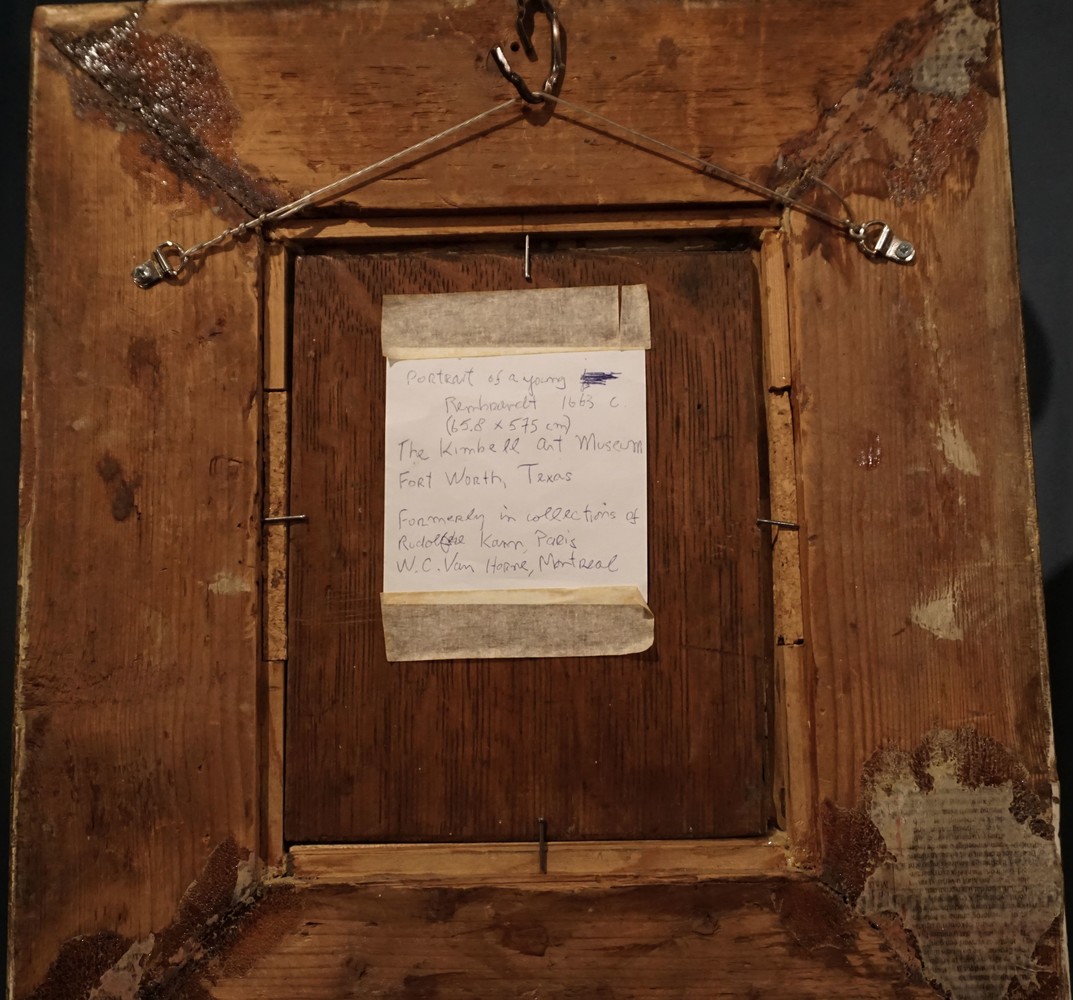 Portrait of a young
Rembrandt 1663 c
(65.8 x 575 cm)
The Kimbell Art Museum
Fort Worth, Texas
Formerly in collections of
Kann, Paris
W.C. Van Horne, Montreal